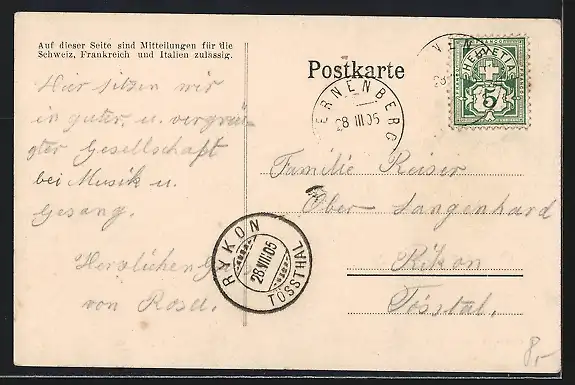 Auf dieser Seite sind Mitteilungen für die
Schweiz, Frankreich und Italien zulässig.
Postkarte
HELVETIA
5
ERNENBERG
28 III 05
Hier sitzen wir
in guter, u. vergnüg-
ter Gesellschaft
bei Musik u.
Gesang.
Herzlichen
von Rosa.
Familie Reiser
Ober Langenhard
Rikon
Tösstal.
RYKON
28 VIII 05
TÖSSTHAL
8,-